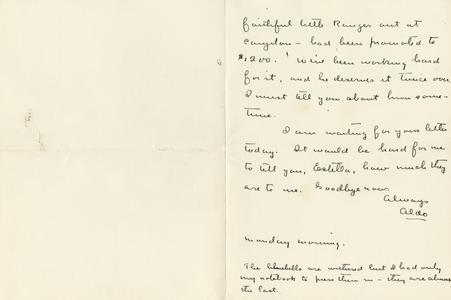 faithful little Ranger out at
Canjilon – had been promoted to
$1200. We've been working hard
for it, and he deserves it twice over
I must tell you about him some-
time.
I am waiting for your letter
today. It would be hard for me
to tell you, Estella, how much they
are to me. Goodbye now.
Always
Aldo
Monday morning.
The bluebells are withered but I had only
my notebook to press them in – they are almost
the last.